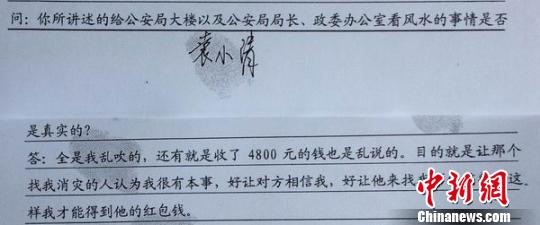 问：你所讲述的给公安局大楼以及公安局局长、政委办公室看风水的事情是否
袁小清
是真实的？
答：全是我乱吹的，还有就是收了 4800 元的钱也是乱说的。目的就是让那个
找我消灾的人认为我很有本事，好让对方相信我，好让他来找我 这
样我才能得到他的红包钱。
中新网
Chinanews.com